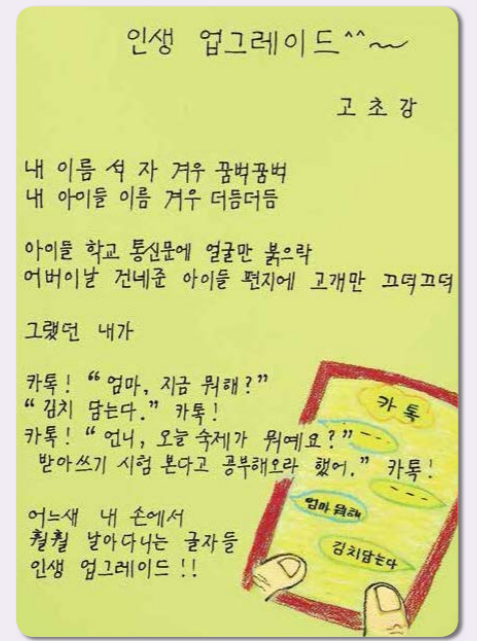 인생 업그레이드^^~
고초강
내 이름 석 자 겨우 끔벅끔벅
내 아이들 이름 겨우 더듬더듬
아이들 학교 통신문에 얼굴만 붉으락
어버이날 건네준 아이들 편지에 고개만 끄덕끄덕
그랬던 내가
카톡! “엄마, 지금 뭐해?”
“김치 담는다.” 카톡!
카톡! “언니, 오늘 숙제가 뭐예요?”
받아쓰기 시험 본다고 공부해오라 했어.” 카톡!
어느새 내 손에서
훨훨 날아다니는 글자들
인생 업그레이드!!
카톡
엄마 뭐해
김치담는다